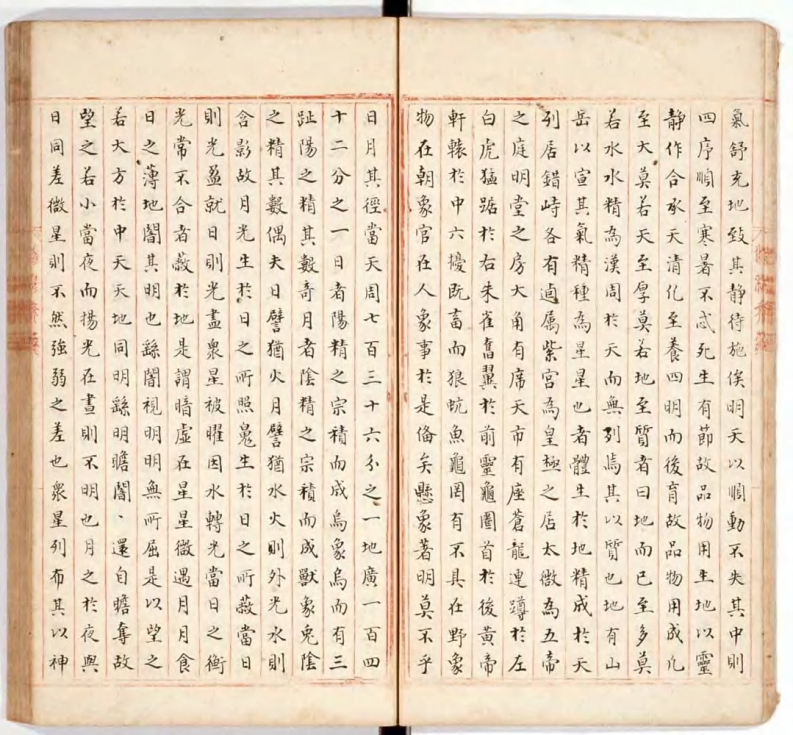 氣舒充地致其靜待施俟明天以順動不失其中則
四序順至寒暑不忒死生有節故品物用生地以靈
靜作合承天清化至養四明而後育故品物用成凡
至大莫若天至厚莫若地至質者曰地而已至多莫
若水水精為漢周於天而無列焉其以質也地有山
岳以宣其氣精種為星星也者體生於地精成於天
列居錯峙各有逌属紫宫為皇極之居太微為五帝
之庭明堂之房大角有席天市有座蒼龍連蹲於左
白虎猛踞於右朱雀奮翼於前靈龜圈首於後黄帝
軒轅於中六擾既畜而狼蚖魚龜罔有不具在野象
物在朝象官在人象事於是偹矣懸象著明莫不乎
日月其徑當天周七百三十六分之一地廣一百四
十二分之一日者陽精之宗積而成烏象烏而有三
趾陽之精其數竒月者陰精之宗積而成獸象兎陰
之精其數偶夫日譬猶火月譬猶水火則外光水則
含影故月光生於日之所照䰟生於日之所蔽當日
則光盈就日則光盡衆星被曜因水轉光當日之衝
光常不合者蔽於地是謂暗虚在星星微遇月月食
日之薄地闇其明也繇闇視明明無所屈是以望之
若大方於中天天地同明繇明瞻闇、還自瞻奪故
望之若小當夜而揚光在晝則不明也月之於夜與
日同差微星則不然強弱之差也衆星列布其以神